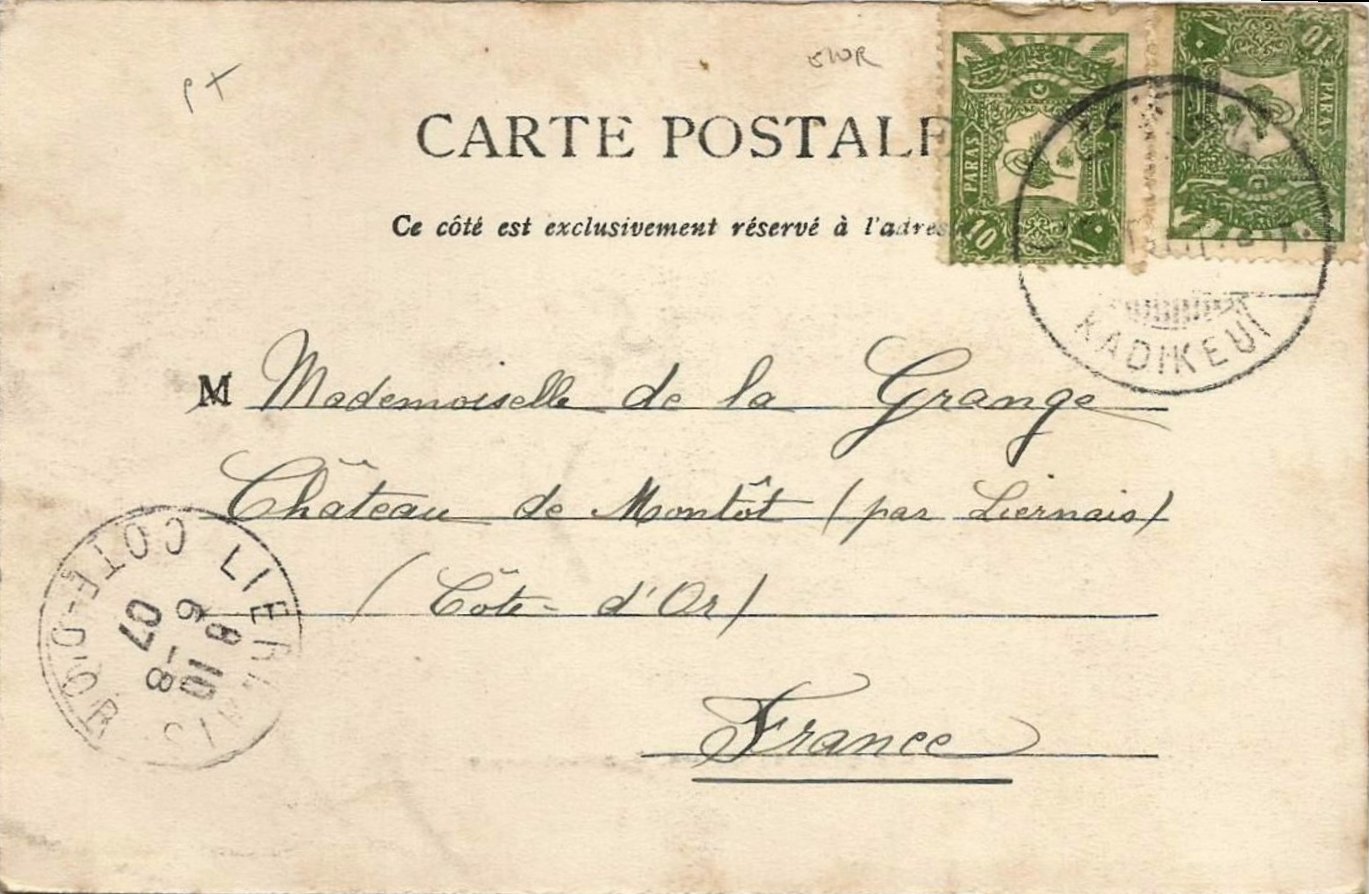 CARTE POSTALE
Ce côté est exclusivement réservé à l'adres
M Mademoiselle de la Grange
Château de Montôt (par Liernais)
(Côte-d'Or)
France
10 PARAS ١٠
10 PARAS ١٠
KADIKEUI
LIERNAIS
8 10
6 -8
07
COTE-D'OR